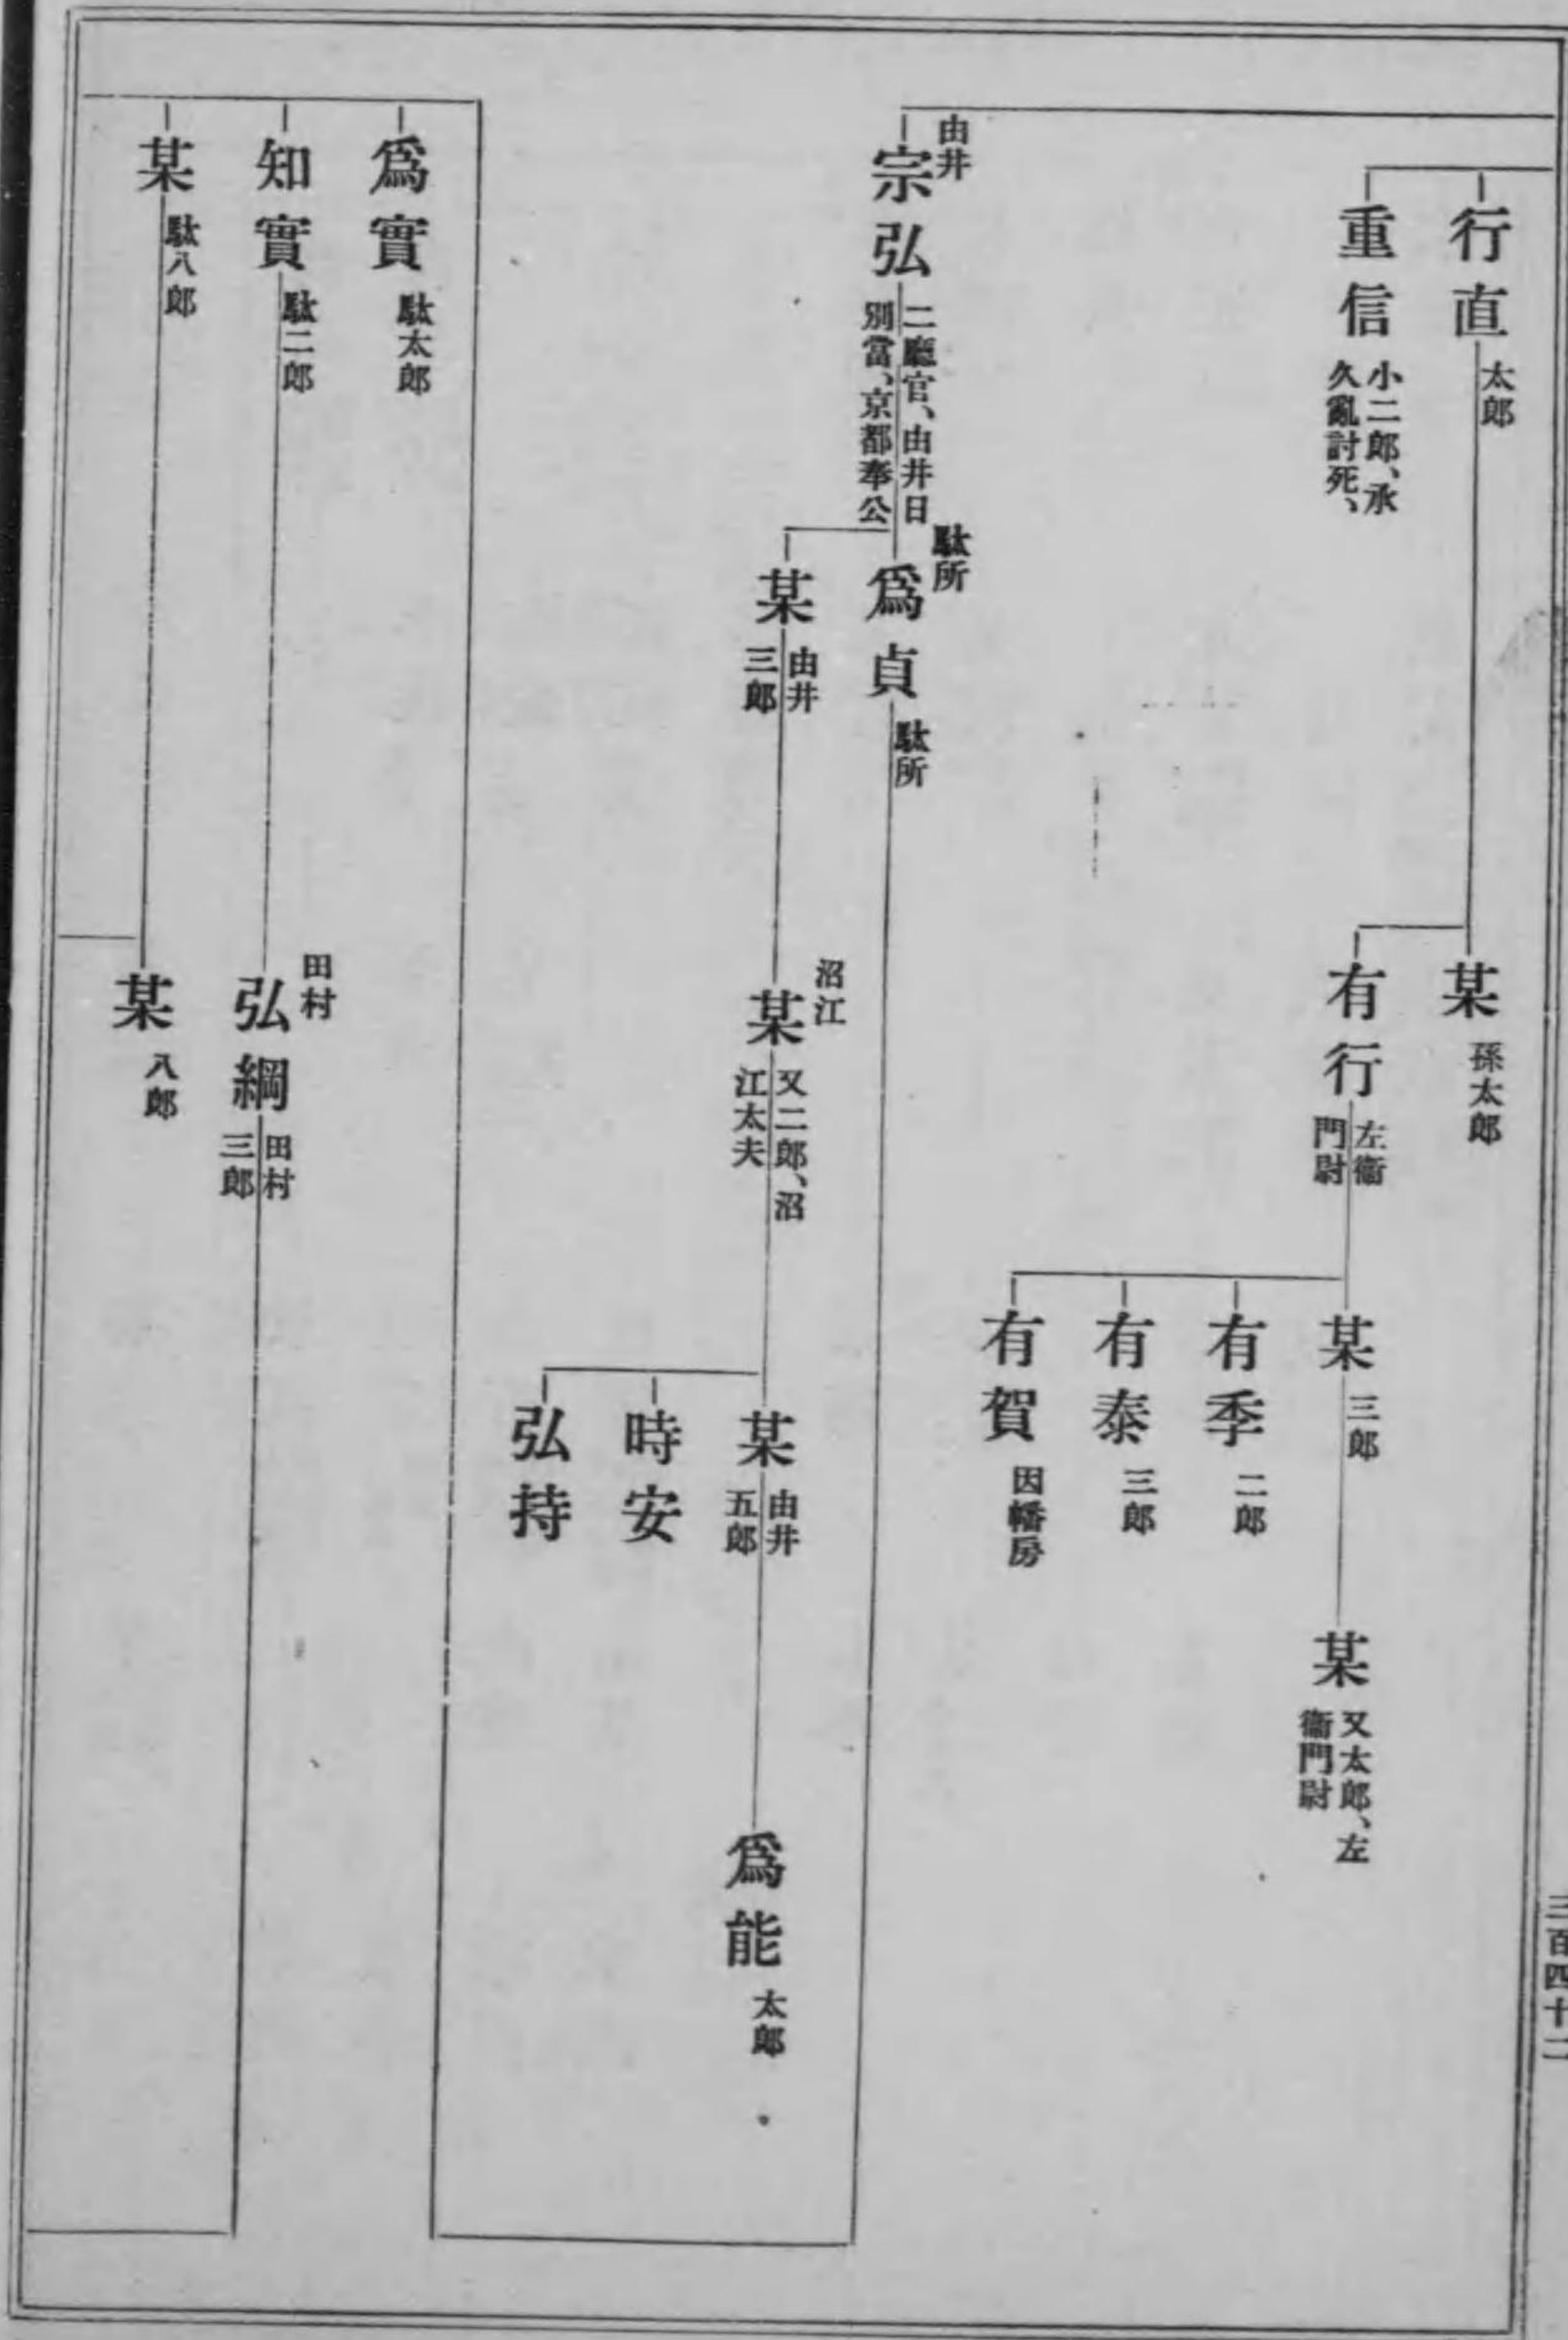 三百四十二
行直
太郎
重信
小二郎、承
久亂討死、
某
孫太郎
有行
左衞
門尉
某
三郎
有季
二郎
有泰
三郎
有賀
因幡房
某
又太郎、左
衞門尉
由井
宗弘
二廳官、由井日
別當、京都奉公
駄所
爲貞
駄所
某
由井
三郎
沼江
某
又二郎、沼
江太夫
某
由井
五郎
時安
弘持
爲能
太郎
爲實
駄太郎
知實
駄二郎
某
駄八郎
田村
弘綱
田村
三郎
某
八郎